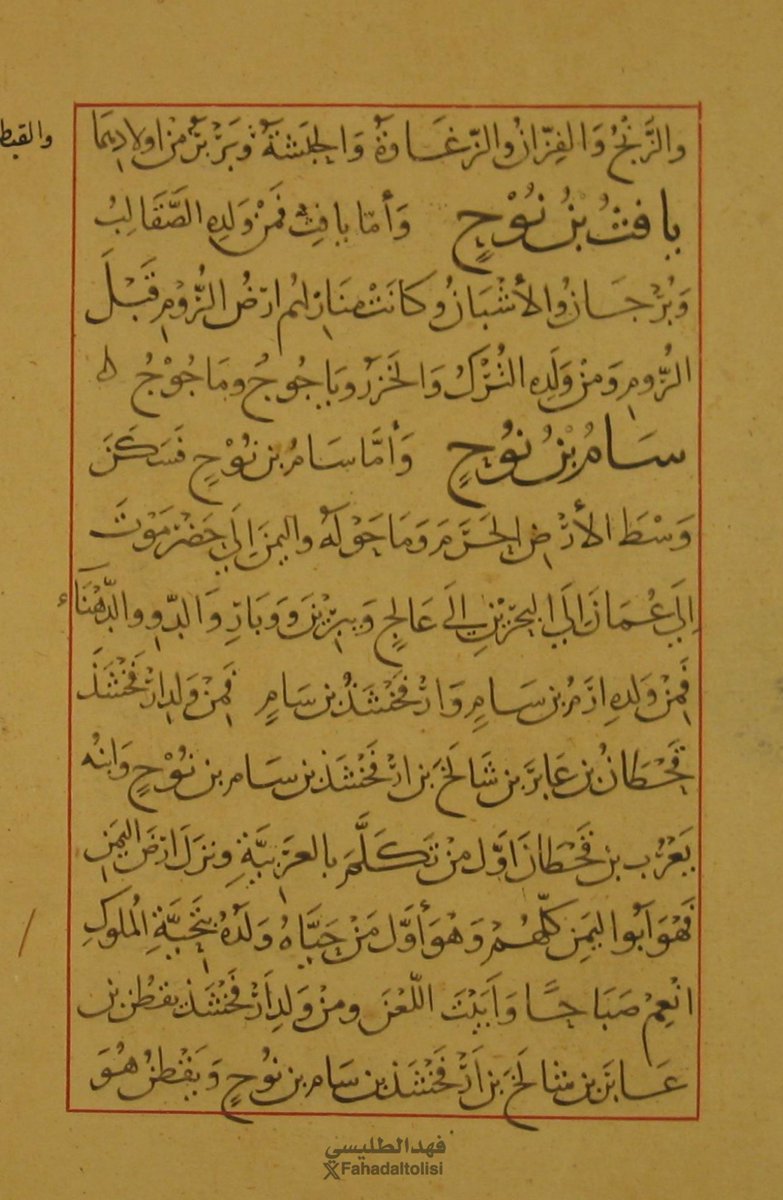 والزَّنْجُ وَالفِزَّانُ والزّغَاوَةُ وَالحَبَشَةُ وَبَرْبَرُ مِنْ اولادِهِمَا
والقبط
يافثُ بنُ نُوْحٍ وَأمّا يافِث فَمِنْ وَلَدِهِ الصَّقَالِبُ
وَبُرْجَانُ والأشْبَانُ وكانَتْ مَنَازِلهُم ارْضُ الرُّومِ قَبْلَ
الرُّومِ وَمنْ وَلَدِهِ التُّرْكُ وَالخَزَرُ ويَاجُوجُ ومَاجُوْجُ ه
سَامُ بْنُ نوُحٍ وَأمَّا سَامُ بن نوْحٍ فَسَكَنَ
وَسْطَ الأرْضِ الحَرَمَ وَمَا حَوْلَهُ واليمنَ اِلَي حَضْرَموْتَ
اِلَي عُمَانَ الَي البَحْرَيْنِ الَى عَالِجٍ وَيبرِيْنَ وَوَبَارِ وَالدّوِ والدَّهْنَاء
فَمِنْ وَلَدِهِ ارَمُ بن سَامٍ وَارْفَخْشَذُ بن سَامٍ فَمِنْ وَلدِ ارْفَخْشَذَ
قَحْطَانُ بن عَابَرَ بن شَالَخَ بن ارْفَخْشَذ بن سَام بن نوْحٍ وَابنُه
يَعْرُب بن قَحْطَانَ اوَّل منْ تَكَلَّمَ بالعَرَبيَّةِ ونزَلَ ارْضَ اليَمَنِ
فَهُوَ أبُوا اليَمنِ كلّهُمْ وَهُوَ أوَّل مَنْ حَيَّاهُ وَلَدُهُ بتَحيَّةِ الُملوكِ
انْعِمْ صَبَاحًا وَابَيْتَ اللّعْنَ ومنْ وَلَدِ اَرْفَخْشَذ يقطُن بن
عَابَر بن شالَخَ بن اَرْفَخْشَذ بن سَام بن نوُحٍ وَيَقْطنُ هُوَ
فهد الطليسي
X Fahadaltolisi